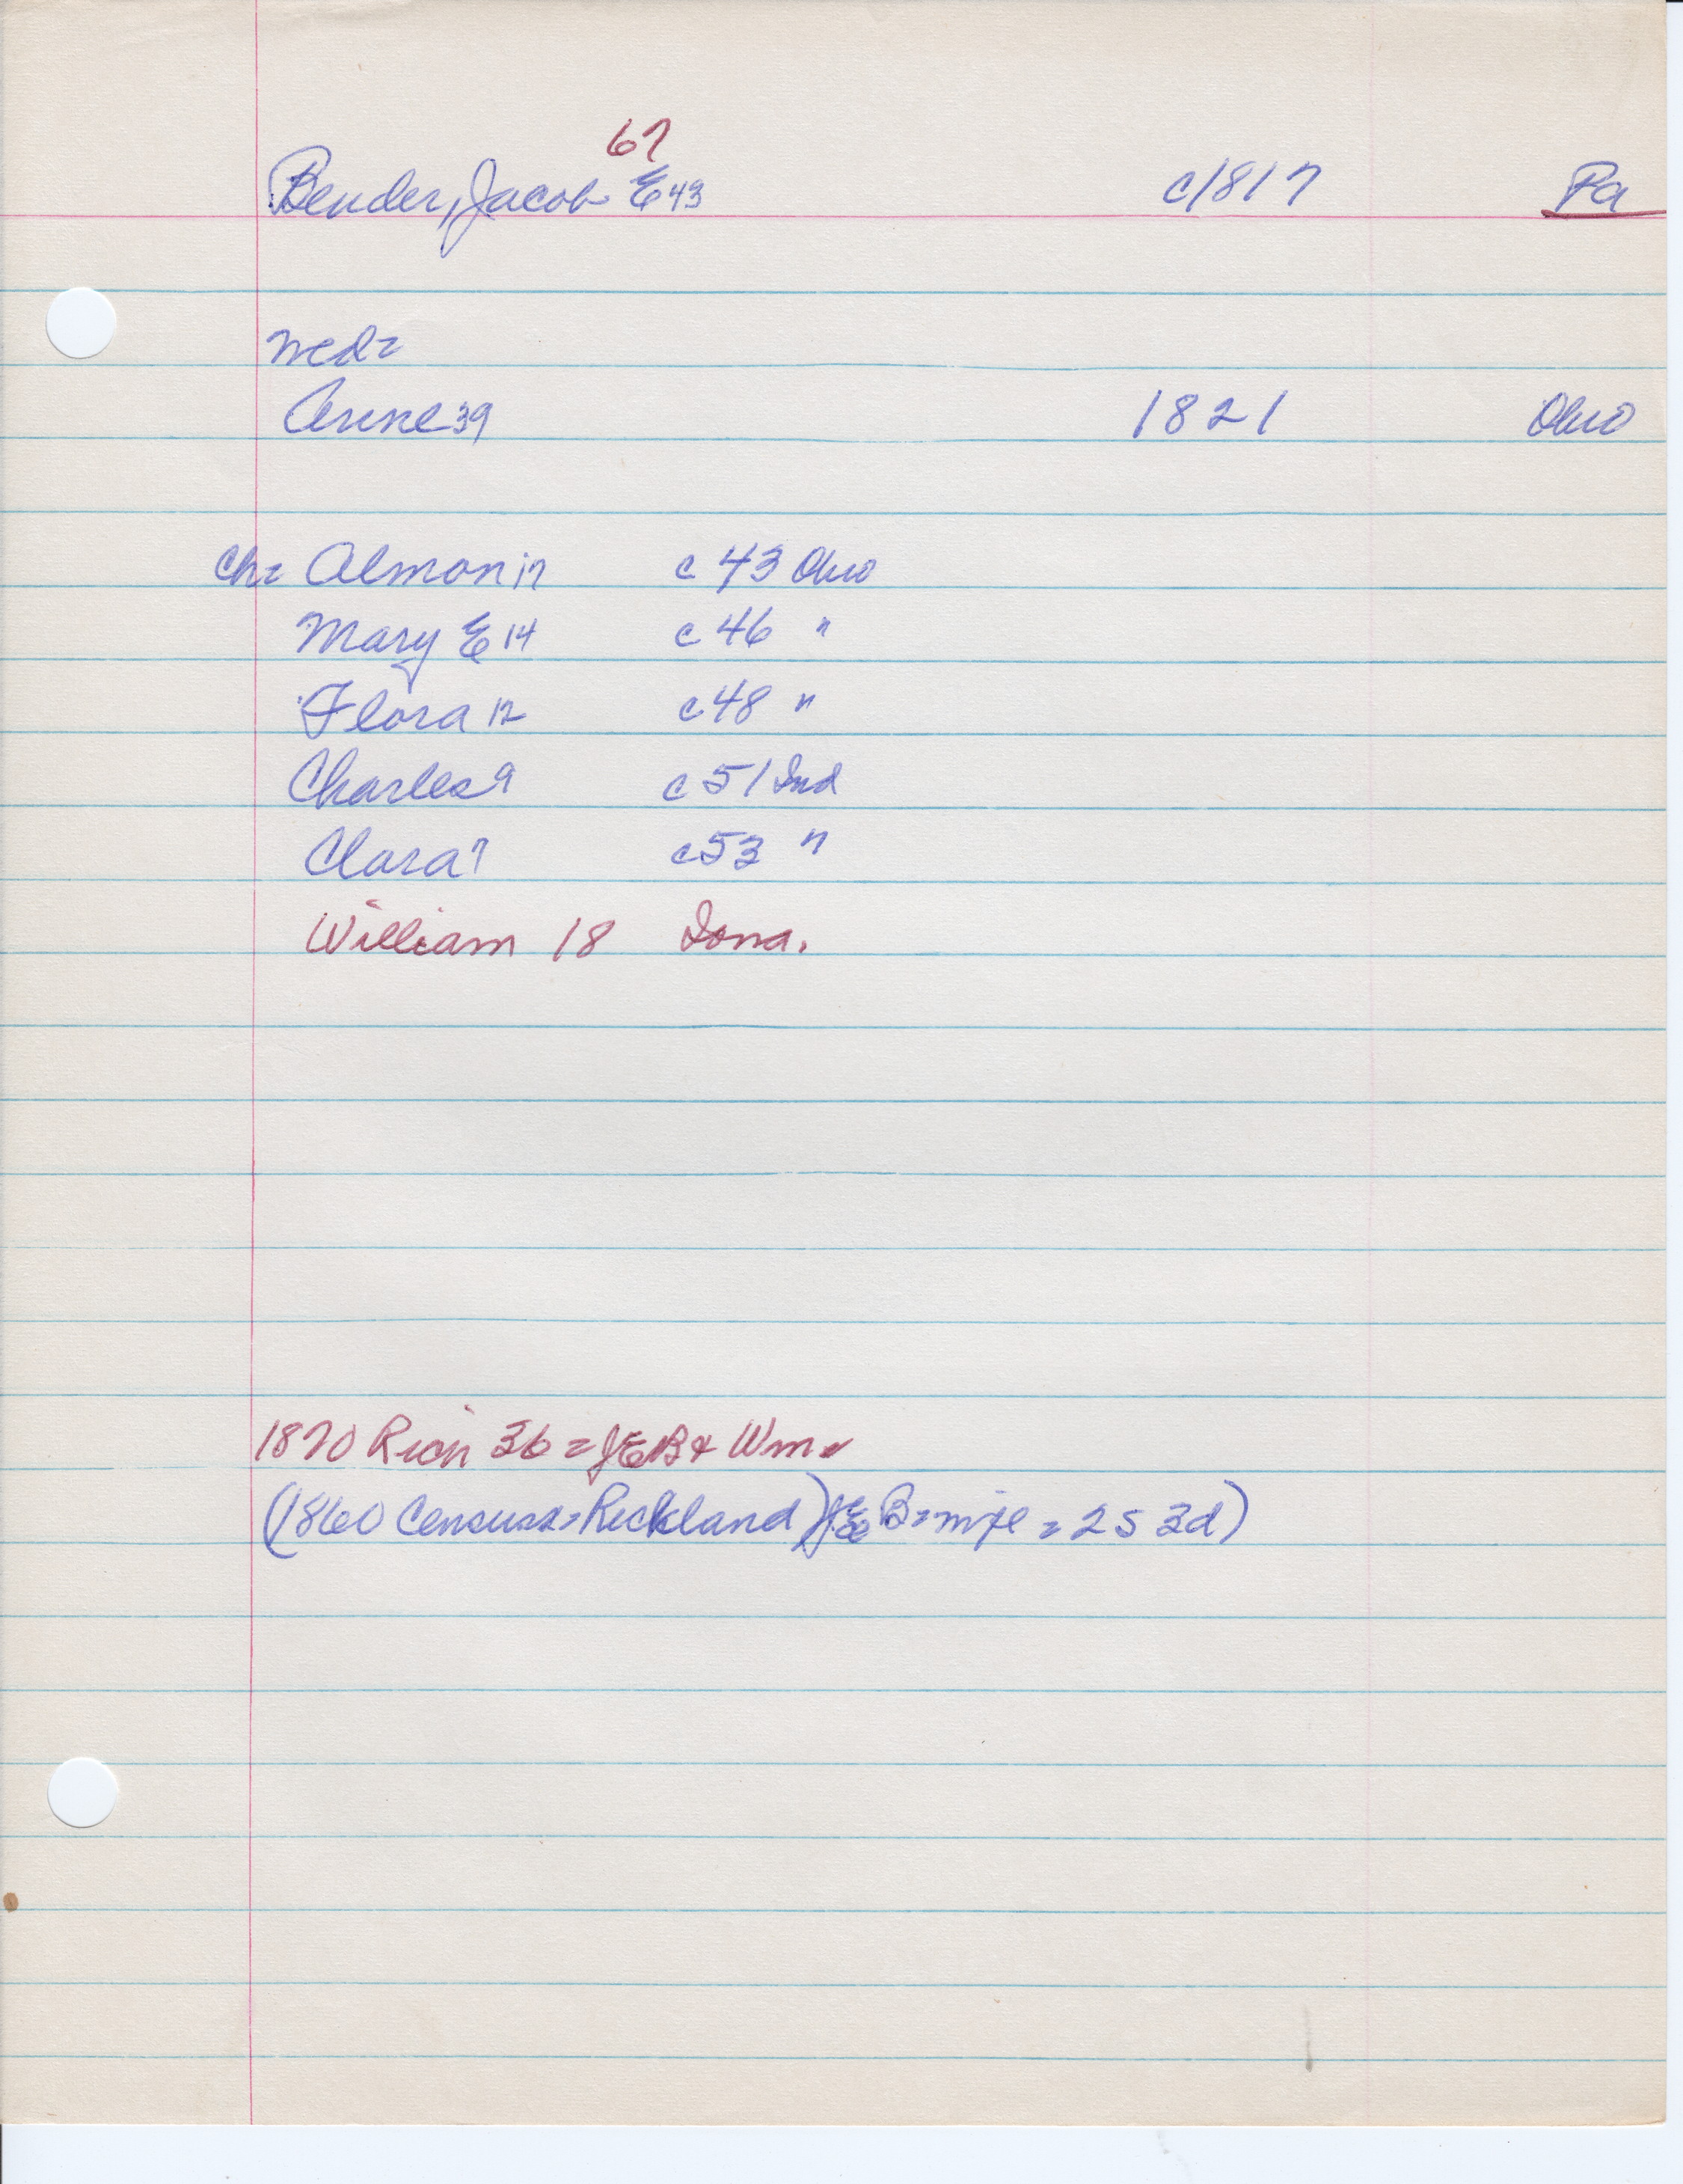 67
Bender, Jacob E 43 c/817 Pa
wed=
Anne 39 1821 Ohio
ch= Almon 17 c 43 Ohio
Mary E 14 c 46 "
Flora 12 c 48 "
Charles 9 c 51 Ind
Clara 7 c 53 "
William 18 Iowa.
1870 36 = JEB & Wm
(1860 Census = Richland) JEB = = 2s 3d)